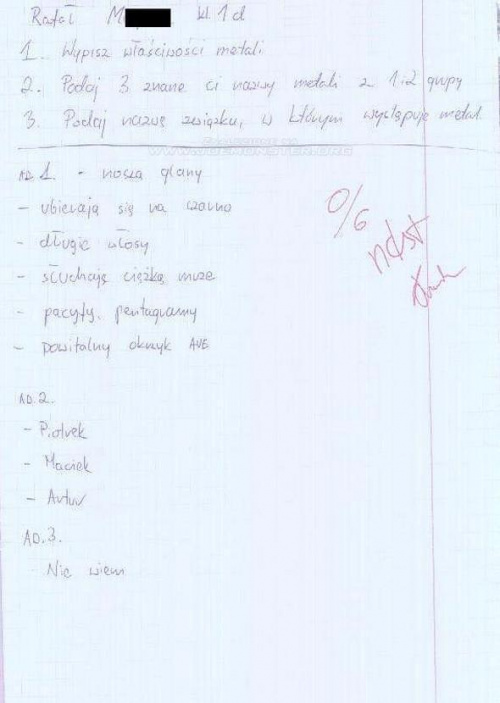 Rafał M kl 1d
1. Wypisz właściwości metali
2. Podaj 3 znane ci nazwy metali z 1 i 2 grupy
3. Podaj nazwę związku, w którym występuje metal.
AD.1. - noszą glany
- ubierają się na czarno
- długie włosy
- słuchają ciężką muze
- pacyfy, pentagramy
- powitalny okrzyk AVE
0/6
ndst
AD.2.
- Piotrek
- Maciek
- Artur
AD.3.
Nie wiem